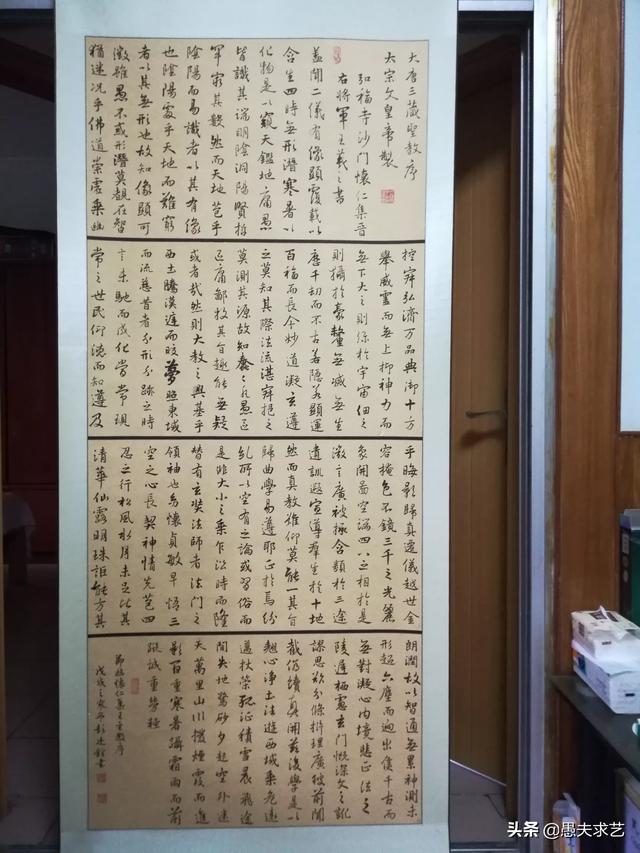 大唐三藏聖教序
太宗文皇帝製
弘福寺沙門懷仁集晉
右將軍王羲之書
蓋聞二儀有像顯覆載以
含生四時無形潛寒暑以
化物是以窺天鑑地庸愚
皆識其端明陰洞陽賢哲
罕窮其數然而天地苞乎
陰陽而易識者以其有像
也陰陽處乎天地而難窮
者以其無形也故知像顯可
徵雖愚不惑形潛莫覩在智
猶迷況乎佛道崇虛乘幽
控寂弘濟万品典御十方
舉威靈而無上抑神力而
無下大之則弥於宇宙細之
則攝於豪釐無滅無生
歷千劫而不古若隱若顯運
百福而長今妙道凝玄遵
之莫知其際法流湛寂挹之
莫測其源故知蠢〻凡愚區
〻庸鄙投其旨趣能無疑
或者哉然則大教之興基乎
西土騰漢庭而皎夢照東域
而流慈昔者分形分跡之時
言未馳而成化當常現
常之世民仰德而知遵及
乎晦影歸真遷儀越世金
容掩色不鏡三千之光麗
象開圖空端四八之相於是
微言廣被拯含類於三途
遺訓遐宣導羣生於十地
然而真教難仰莫能一其旨
歸曲學易遵耶正於焉紛
糺所以空有之論或習俗而
是非大小之乘乍沿時而隆
替有玄奘法師者法門之
領袖也幼懷貞敏早悟三
空之心長契神情先苞四
忍之行松風水月未足比其
清華仙露明珠詎能方其
朗潤故以智通無累神測未
形超六塵而迥出隻千古而
無對凝心內境悲正法之
陵遲栖慮玄門慨深文之訛
謬思欲分條析理廣彼前聞
截偽續真開茲後學是以
翹心淨土法遊西域乘危遠
邁杖策孤征積雪晨飛途
間失地驚砂夕起空外迷
天萬里山川撥煙霞而進
影百重寒暑躡霜雨而前
蹤誠重勞輕
節臨懷仁集王聖教序
戊戌之寒書
头条@愚夫求艺